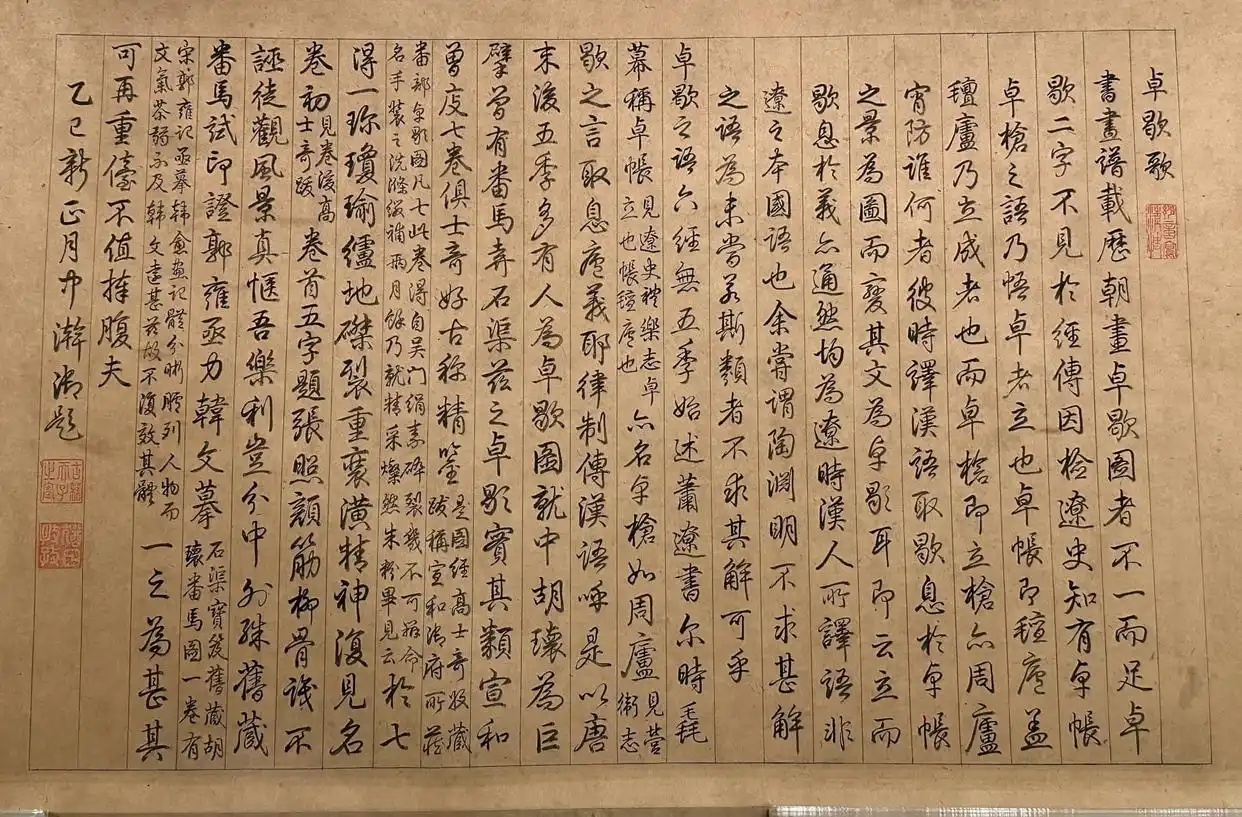 卓歇歌
書畫譜載歷朝畫卓歇圖者不一而足卓
歇二字不見於經傳因檢遼史知有卓帳
卓槍之語乃悟卓者立也卓帳即氊廬盖
氊廬乃立成者也而卓槍即立槍亦周廬
宵防誰何者彼時譯漢語取歇息於卓帳
之景為圖而變其文為卓歇耳即云立而
歇息於義亦通然均為遼時漢人所譯語非
遼之本國語也余嘗謂陶淵明不求甚解
之語為未當若斯類者不求其解可乎
卓歇之語六經無五季始述蕭遼書尔時毳
幕稱卓帳
見遼史禮樂志卓
立也帳氊廬也
亦名卓槍如周廬
見營
衛志
歇之言取息廬義耶律制傳漢語呼是以唐
末後五季多有人為卓歇圖就中胡瓌為巨
擘曾有番馬弆石渠茲之卓歇實其類宣和
曾庋七卷俱士奇好古称精鑒
是圖經高士奇收藏
跋稱宣和御府所蔵
番部卓歇圖凡七此卷得自吴門絹素碎裂幾不可辨命
名手裝之洗滌綴補兩月餘乃就精采燦然朱粉畢見云
於七
得一珎瓊瑜纑地磔裂重裝潢精神復見名
卷初
見卷後高
士奇跋
卷首五字題張照顔筋柳骨識不
誣徒觀風景真愜吾樂利豈分中外殊舊藏
番馬試印證郭雍丞力韓文摹
石渠寶笈舊藏胡
瓌番馬圖一卷有
宋郭雍記亟摹韓愈畫記體分晰臚列人物而
文氣苶弱不及韓文遠甚茲故不復效其體
一之為甚其
可再重儓不值捧腹夫
乙巳新正月中澣御題